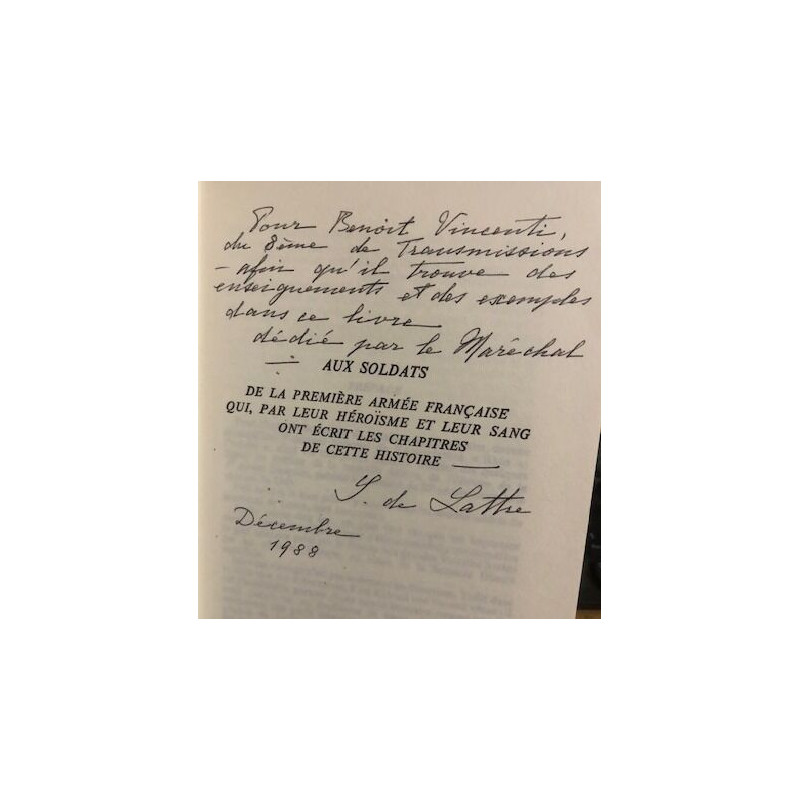 Pour Benoit Vincenti,
du 8ème de Transmissions
- afin qu'il trouve des
enseignements et des exemples
dans ce livre
dédié par le Maréchal
— AUX SOLDATS
DE LA PREMIÈRE ARMÉE FRANÇAISE
QUI, PAR LEUR HÉROÏSME ET LEUR SANG
ONT ÉCRIT LES CHAPITRES
DE CETTE HISTOIRE —
S. de Lattre
Décembre
1988